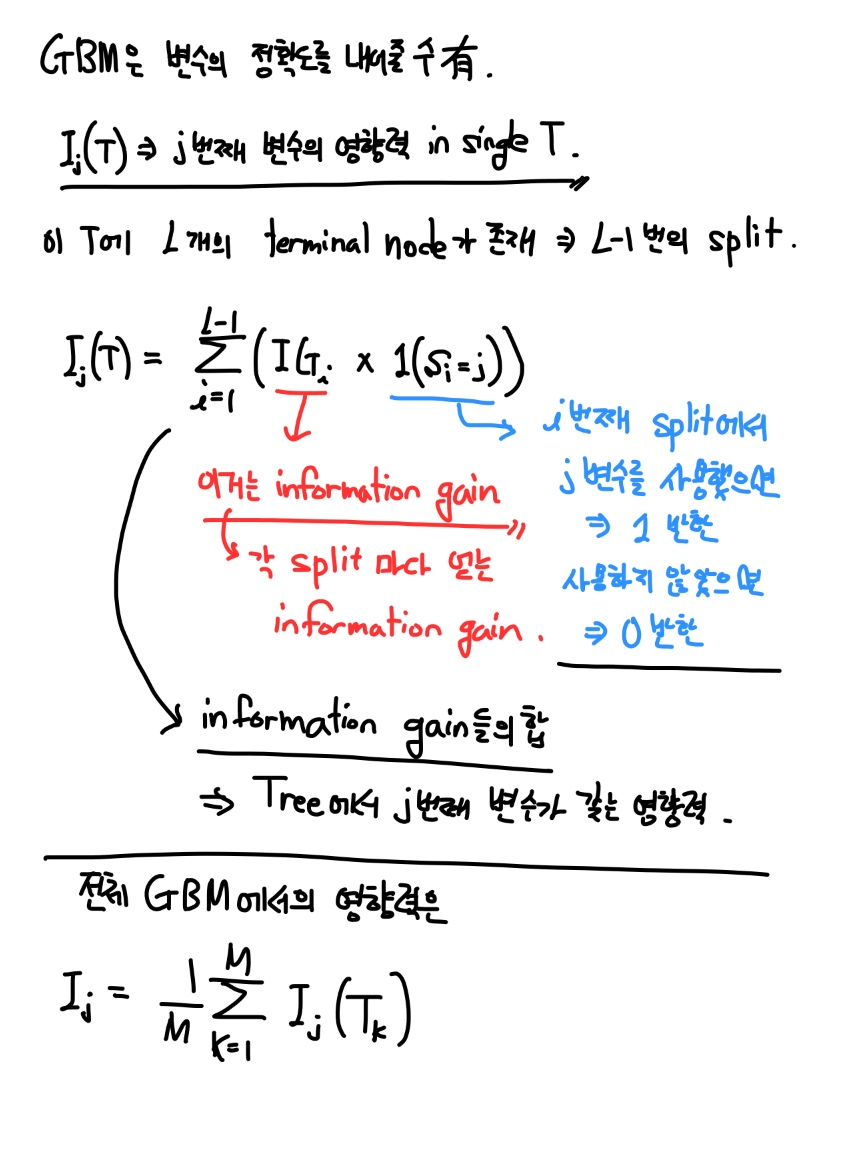 GBM은 변수의 정확도를 내어줄 수 有.
I_j(T) ⇒ j번째 변수의 영향력 in single T.
이 T에 L개의 terminal node가 존재 ⇒ L-1번의 split.
I_j(T) = \sum_{i=1}^{L-1} (IG_i × 1(S_i=j))
이거는 information gain
각 split 마다 얻는
information gain.
i번째 split에서
j 변수를 사용했으면
⇒ 1 반환
사용하지 않았으면
⇒ 0 반환
information gain들의 합
⇒ Tree에서 j번째 변수가 갖는 영향력.
전체 GBM에서의 영향력은
I_j = \frac{1}{M} \sum_{k=1}^{M} I_j(T_k)